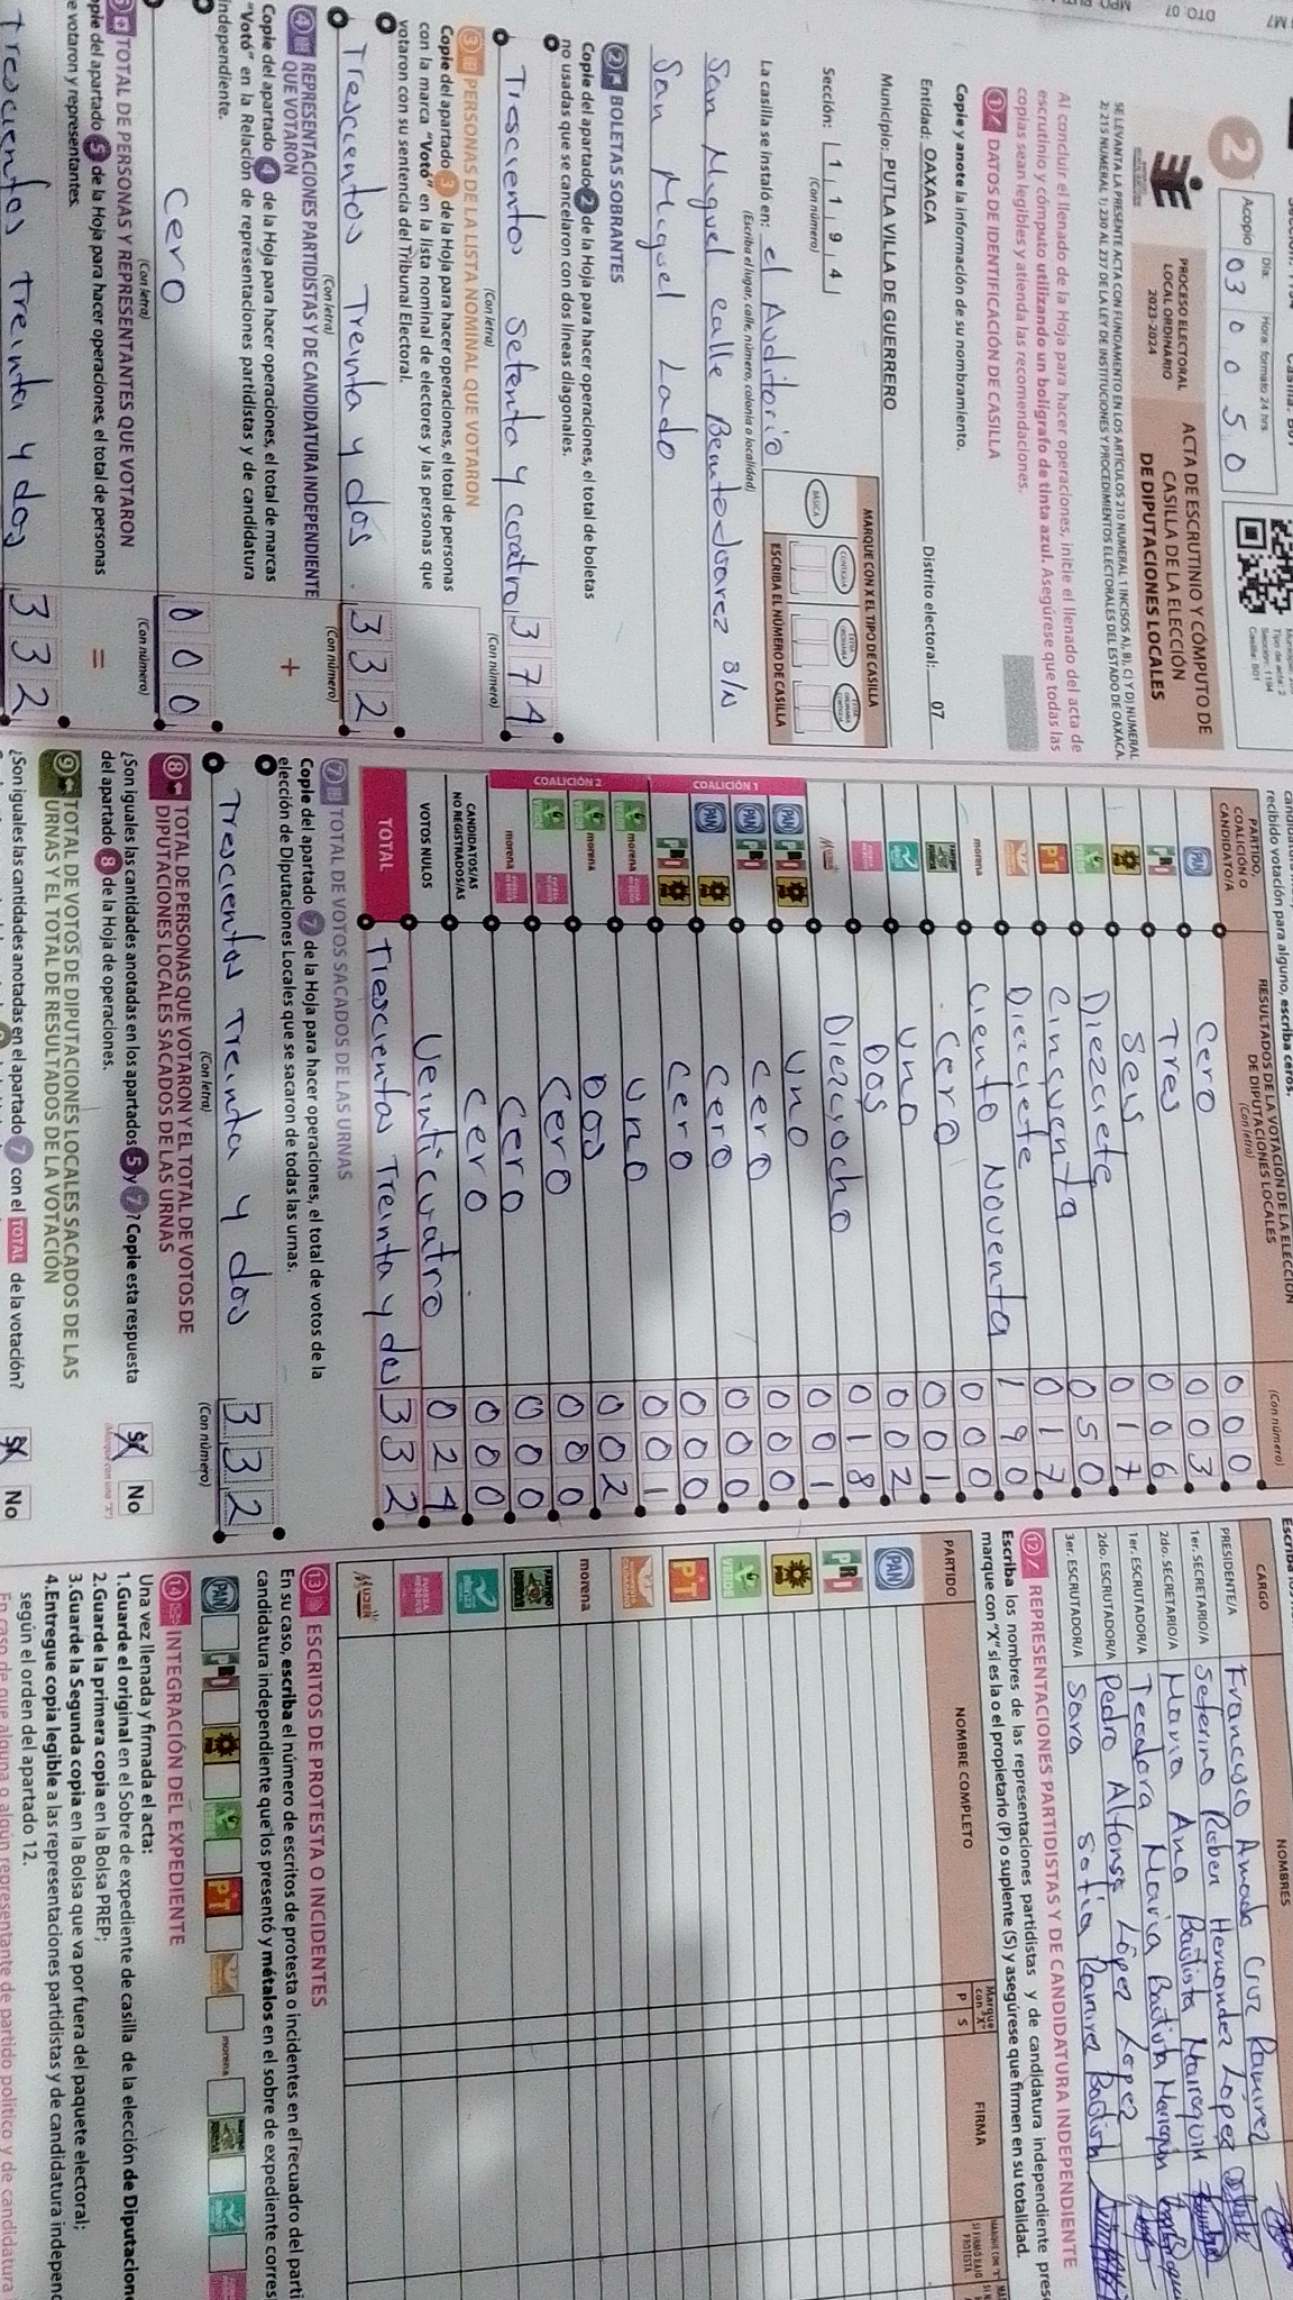 Acopio
Día:
Hora: formato 24 hrs
03 00 50
2
Tipo de acta: 2
Sección: 1194
Casilla: B01
PROCESO ELECTORAL
LOCAL ORDINARIO
2023-2024
ACTA DE ESCRUTINIO Y CÓMPUTO DE
CASILLA DE LA ELECCIÓN
DE DIPUTACIONES LOCALES
SE LEVANTA LA PRESENTE ACTA CON FUNDAMENTO EN LOS ARTÍCULOS 210 NUMERAL 1 INCISOS A), B), C) Y D) NUMERAL
2; 215 NUMERAL 1; 230 AL 237 DE LA LEY DE INSTITUCIONES Y PROCEDIMIENTOS ELECTORALES DEL ESTADO DE OAXACA.
Al concluir el llenado de la Hoja para hacer operaciones, inicie el llenado del acta de
escrutinio y cómputo utilizando un bolígrafo de tinta azul. Asegúrese que todas las
copias sean legibles y atienda las recomendaciones.
1 DATOS DE IDENTIFICACIÓN DE CASILLA
Copie y anote la información de su nombramiento.
Entidad: OAXACA Distrito electoral: 07
Municipio: PUTLA VILLA DE GUERRERO
Sección: 1 1 9 4
(Con número)
MARQUE CON X EL TIPO DE CASILLA
BÁSICA
ESCRIBA EL NÚMERO DE CASILLA
La casilla se instaló en: el Auditorio
(Escriba el lugar, calle, número, colonia o localidad)
San Miguel calle Benito Juarez S/N
San Miguel Lado
2 BOLETAS SOBRANTES
Copie del apartado 2 de la Hoja para hacer operaciones, el total de boletas
no usadas que se cancelaron con dos líneas diagonales.
Trescientos setenta y cuatro 374
(Con letra) (Con número)
3 PERSONAS DE LA LISTA NOMINAL QUE VOTARON
Copie del apartado 3 de la Hoja para hacer operaciones, el total de personas
con la marca "Votó" en la lista nominal de electores y las personas que
votaron con su sentencia del Tribunal Electoral.
Trescientos Treinta y dos. 332
(Con letra) (Con número)
4 REPRESENTACIONES PARTIDISTAS Y DE CANDIDATURA INDEPENDIENTE
QUE VOTARON
+
Copie del apartado 4 de la Hoja para hacer operaciones, el total de marcas
"Votó" en la Relación de representaciones partidistas y de candidatura
independiente.
Cero 000
(Con letra) (Con número)
TOTAL DE PERSONAS Y REPRESENTANTES QUE VOTARON
=
ple del apartado 5 de la Hoja para hacer operaciones, el total de personas
e votaron y representantes.
Trescientos treinta y dos 332
recibido votación para alguno, escriba ceros.
PARTIDO,
COALICIÓN O
CANDIDATO/A
RESULTADOS DE LA VOTACIÓN DE LA ELECCIÓN
DE DIPUTACIONES LOCALES
(Con letra)
(Con número)
PAN Cero 000
PRI Tres 003
PRD Seis 006
VERDE Diezciete 017
PT Cincuenta 050
Diezciete 017
morena Ciento Noventa 190
Cero 000
Uno 001
Dos 002
MUJER Diezciocho 018
COALICIÓN 1
PAN PRI PRD Uno 001
PAN PRI Cero 000
PAN PRD Cero 000
PRI PRD Cero 000
COALICIÓN 2
VERDE morena Uno 001
VERDE morena Dos 002
VERDE Cero 000
morena Cero 000
CANDIDATOS/AS
NO REGISTRADOS/AS
Cero 000
VOTOS NULOS Veinticuatro 024
TOTAL Trescientos Treinta y dos 332
7 TOTAL DE VOTOS SACADOS DE LAS URNAS
Copie del apartado 7 de la Hoja para hacer operaciones, el total de votos de la
elección de Diputaciones Locales que se sacaron de todas las urnas.
Trescientos Treinta y dos 332
(Con letra) (Con número)
8 TOTAL DE PERSONAS QUE VOTARON Y EL TOTAL DE VOTOS DE
DIPUTACIONES LOCALES SACADOS DE LAS URNAS
¿Son iguales las cantidades anotadas en los apartados 5 y 7? Copie esta respuesta
del apartado 8 de la Hoja de operaciones.
Sí No
9 TOTAL DE VOTOS DE DIPUTACIONES LOCALES SACADOS DE LAS
URNAS Y EL TOTAL DE RESULTADOS DE LA VOTACIÓN
¿Son iguales las cantidades anotadas en el apartado 7 con el TOTAL de la votación?
Sí No
CARGO
NOMBRES
PRESIDENTE/A Francisco Amado Cruz Ramirez
1er. SECRETARIO/A Seferino Ruben Hernandez López
2do. SECRETARIO/A Maria Ana Bautista Mairequin
1er. ESCRUTADOR/A Teodora Maria Bautista
2do. ESCRUTADOR/A Pedro Alfonso López López
3er. ESCRUTADOR/A Sara Sofia Ramirez
12 REPRESENTACIONES PARTIDISTAS Y DE CANDIDATURA INDEPENDIENTE
Escriba los nombres de las representaciones partidistas y de candidatura independiente pres
marque con "X" si es la o el propietario (P) o suplente (S) y asegúrese que firmen en su totalidad.
PARTIDO
NOMBRE COMPLETO
Marque
con "X"
P S
FIRMA
PAN
PRI
PRD
VERDE
PT
morena
MUJER
13 ESCRITOS DE PROTESTA O INCIDENTES
En su caso, escriba el número de escritos de protesta o incidentes en el recuadro del parti
candidatura independiente que los presentó y métalos en el sobre de expediente corres
PAN PRI PRD PT morena
14 INTEGRACIÓN DEL EXPEDIENTE
Una vez llenada y firmada el acta:
1.Guarde el original en el Sobre de expediente de casilla de la elección de Diputacion
2.Guarde la primera copia en la Bolsa PREP;
3.Guarde la Segunda copia en la Bolsa que va por fuera del paquete electoral;
4.Entregue copia legible a las representaciones partidistas y de candidatura independ
según el orden del apartado 12.
En caso de que alguna o algún representante de partido político y de candidatura